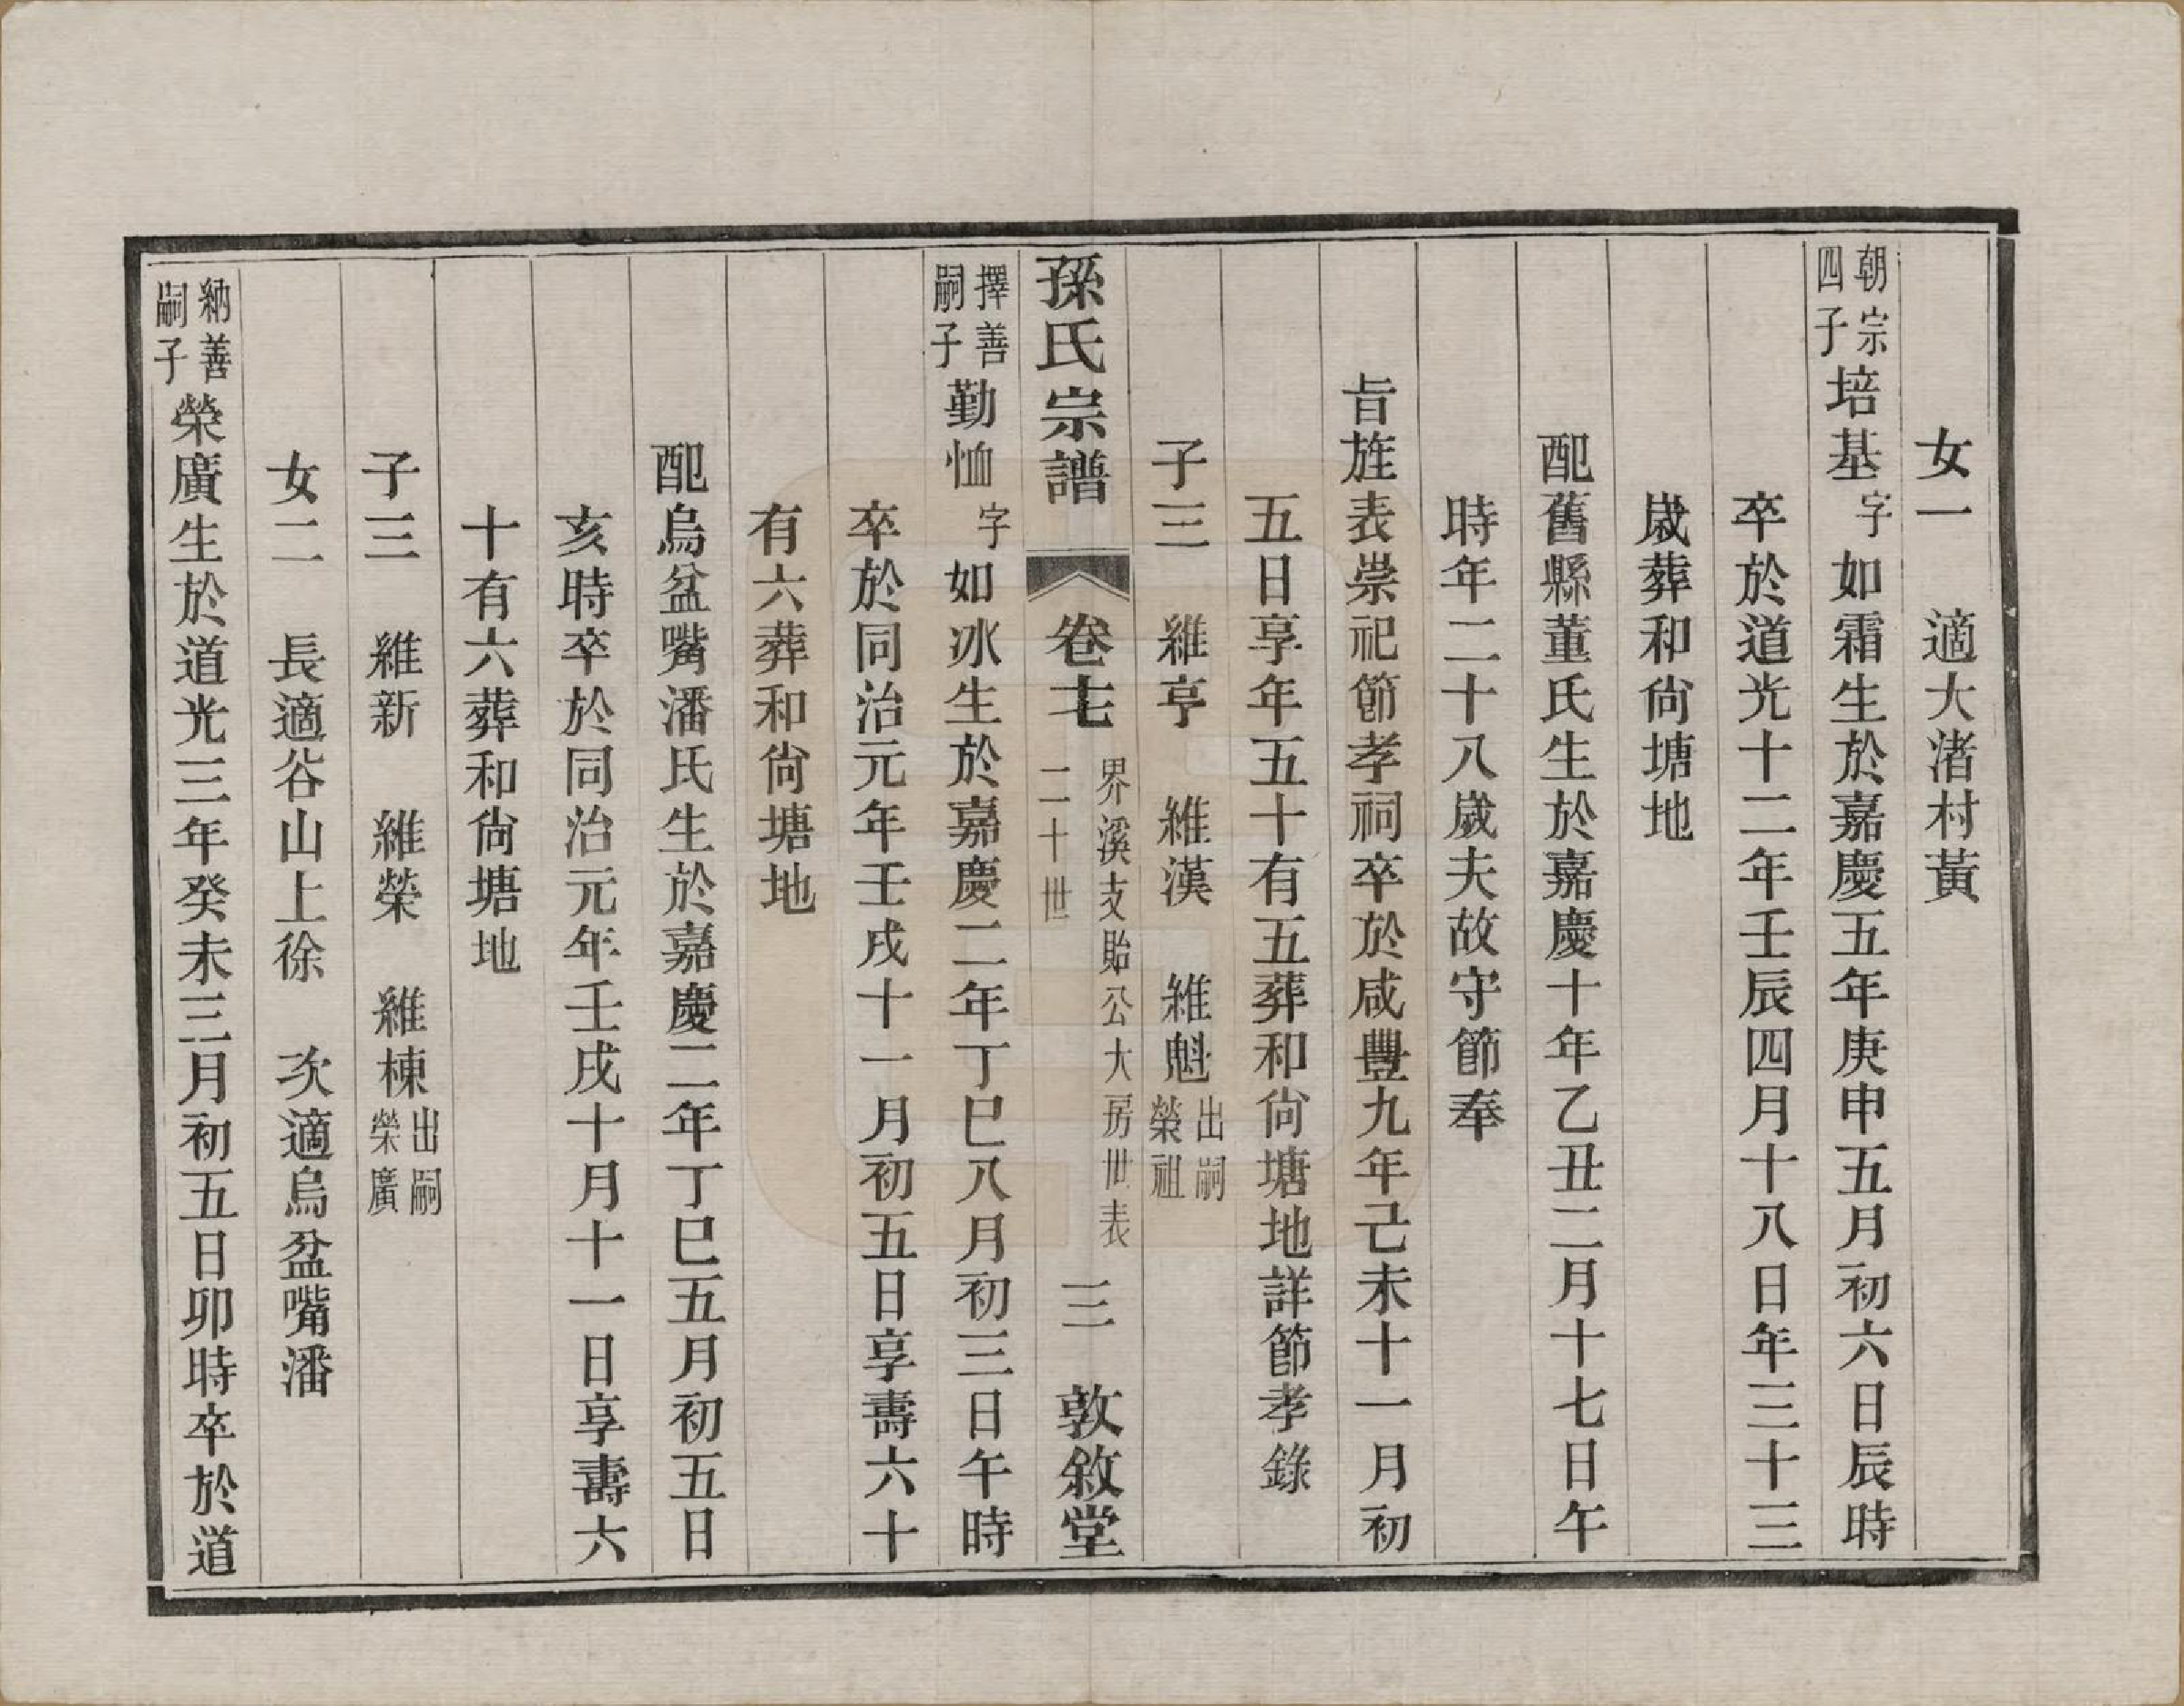 女一　適大渚村黃
朝宗四子培基字如霜生於嘉慶五年庚申五月初六日辰時
卒於道光十二年壬辰四月十八日年三十三
歲葬和尙塘地
配舊縣董氏生於嘉慶十年乙丑二月十七日午
時年二十八歲夫故守節奉
旨旌表崇祀節孝祠卒於咸豐九年己未十一月初
五日享年五十有五葬和尙塘地詳節孝錄
子三　維亭　維漢　維魁出嗣榮祖
孫氏宗譜　卷七　界溪支貽公大房世表二十世　三　敦敘堂
擇善嗣子勤恤字如冰生於嘉慶二年丁巳八月初三日午時
卒於同治元年壬戌十一月初五日享壽六十
有六葬和尙塘地
配烏盆嘴潘氏生於嘉慶二年丁巳五月初五日
亥時卒於同治元年壬戌十月十一日享壽六
十有六葬和尙塘地
子三　維新　維榮　維棟出嗣榮廣
女二　長適谷山上徐　次適烏盆嘴潘
納善嗣子榮廣生於道光三年癸未三月初五日卯時卒於道